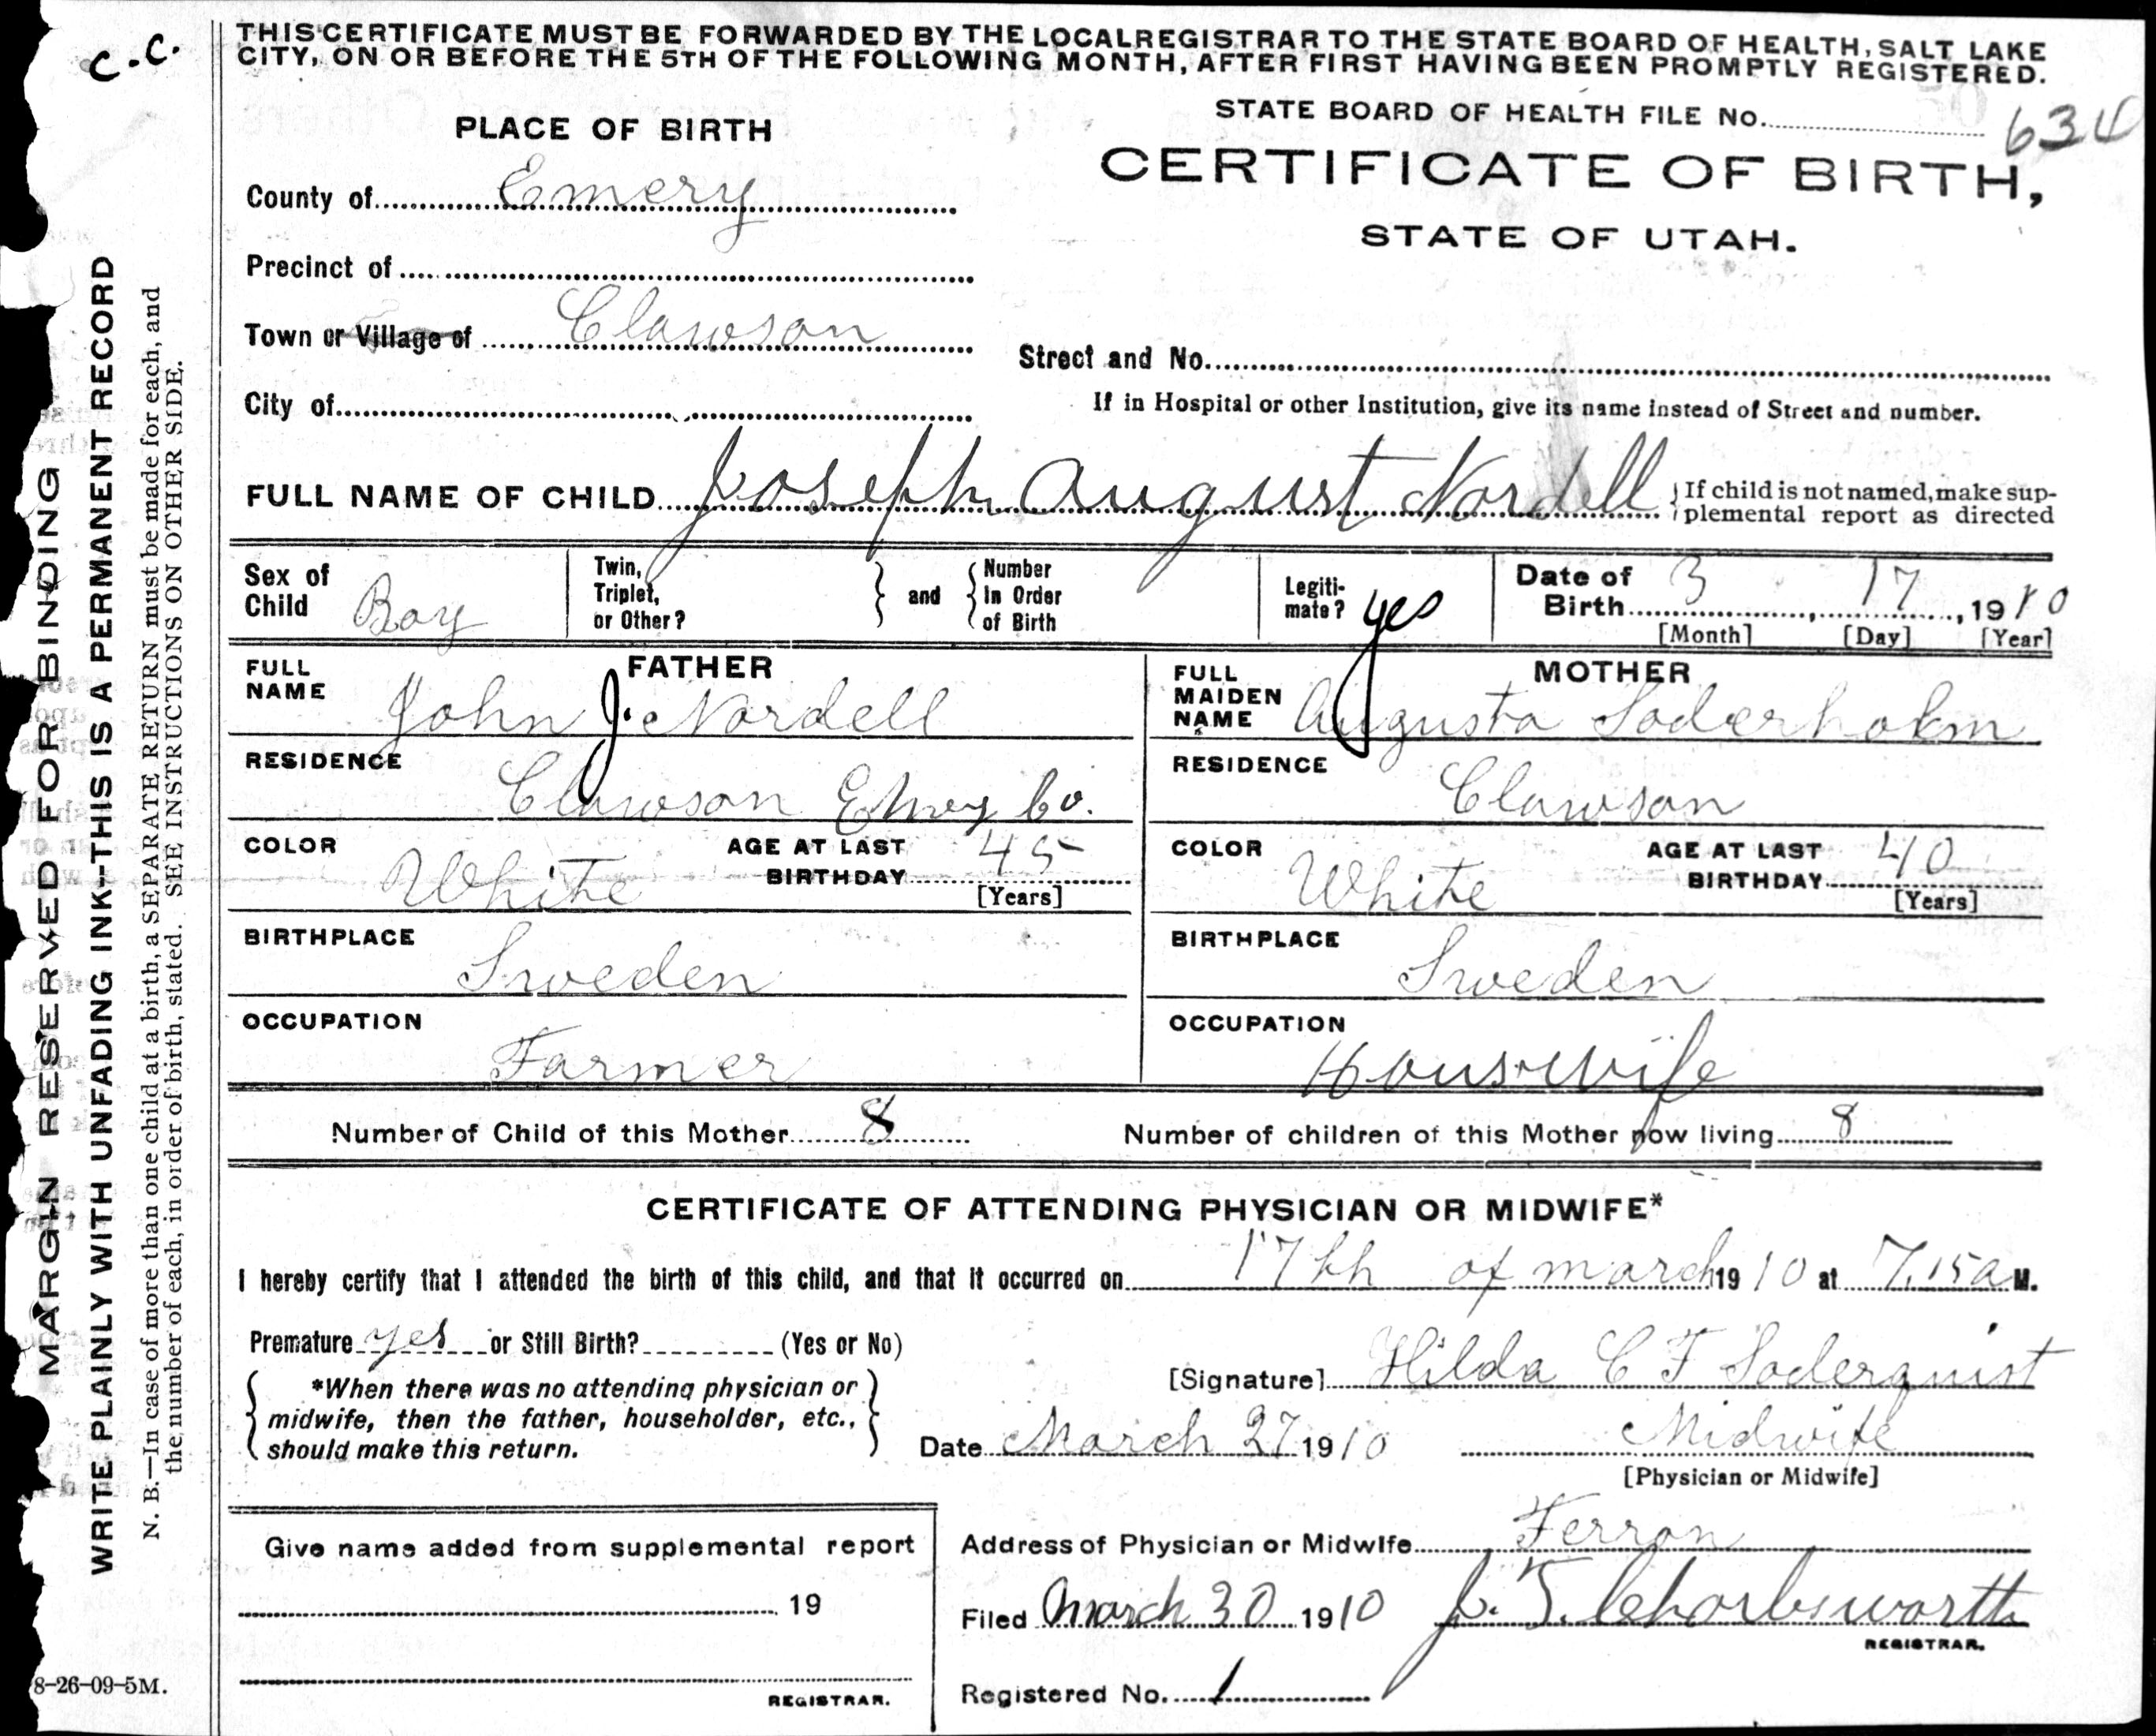 C.C.
THIS CERTIFICATE MUST BE FORWARDED BY THE LOCAL REGISTRAR TO THE STATE BOARD OF HEALTH, SALT LAKE
CITY, ON OR BEFORE THE 5TH OF THE FOLLOWING MONTH, AFTER FIRST HAVING BEEN PROMPTLY REGISTERED.
STATE BOARD OF HEALTH FILE No. 634
PLACE OF BIRTH
CERTIFICATE OF BIRTH,
STATE OF UTAH.
County of Emery
Precinct of
Town or Village of Clawson
Street and No.
City of
If in Hospital or other Institution, give its name instead of Street and number.
FULL NAME OF CHILD Joseph August Nordell
If child is not named, make sup-
plemental report as directed
Sex of
Child Boy
Twin,
Triplet,
or Other?
and
Number
In Order
of Birth
Legiti-
mate? yes
Date of
Birth 3, 17, 1910
[Month] [Day] [Year]
FATHER
FULL
NAME John J. Nordell
RESIDENCE
Clawson Emery Co.
COLOR White
AGE AT LAST
BIRTHDAY 45
[Years]
BIRTHPLACE
Sweden
OCCUPATION
Farmer
MOTHER
FULL
MAIDEN
NAME Augusta Soderholm
RESIDENCE
Clawson
COLOR White
AGE AT LAST
BIRTHDAY 40
[Years]
BIRTHPLACE
Sweden
OCCUPATION
Housewife
Number of Child of this Mother 8
Number of children of this Mother now living 8
CERTIFICATE OF ATTENDING PHYSICIAN OR MIDWIFE*
I hereby certify that I attended the birth of this child, and that it occurred on 17th of march 1910 at 7.15 a M.
Premature yes or Still Birth? (Yes or No)
*When there was no attending physician or
midwife, then the father, householder, etc.,
should make this return.
[Signature] Hilda C F Soderquist
Date March 27 1910
Midwife
[Physician or Midwife]
Give name added from supplemental report
19
REGISTRAR.
Address of Physician or Midwife Ferron
Filed March 30 1910 J. T. Charlesworth
REGISTRAR.
Registered No. 1
MARGIN RESERVED FOR BINDING
WRITE PLAINLY WITH UNFADING INK--THIS IS A PERMANENT RECORD
N. B.—In case of more than one child at a birth, a SEPARATE RETURN must be made for each, and
the number of each, in order of birth, stated. SEE INSTRUCTIONS ON OTHER SIDE.
8-26-09-5M.